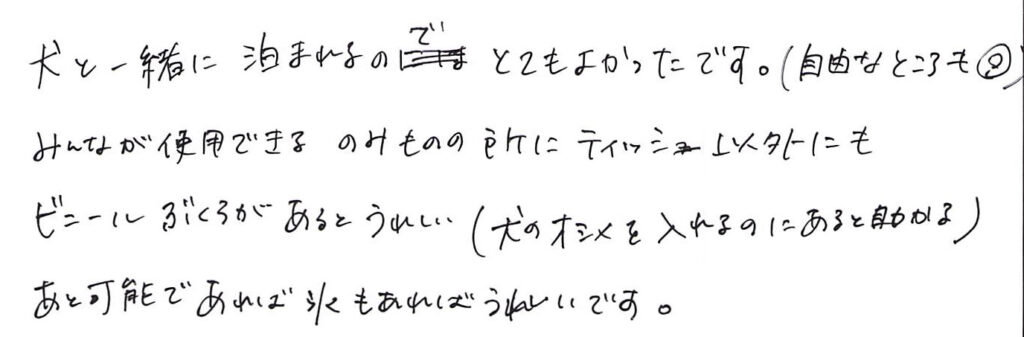 犬と一緒に泊まれるのでとてもよかったです。(自由なところも◎)
みんなが使用できるのみものの所にティッシュ以外にも
ビニールぶくろがあるとうれしい(犬のオシメを入れるのにあると助かる)
あと可能であれば氷もあればうれしいです。